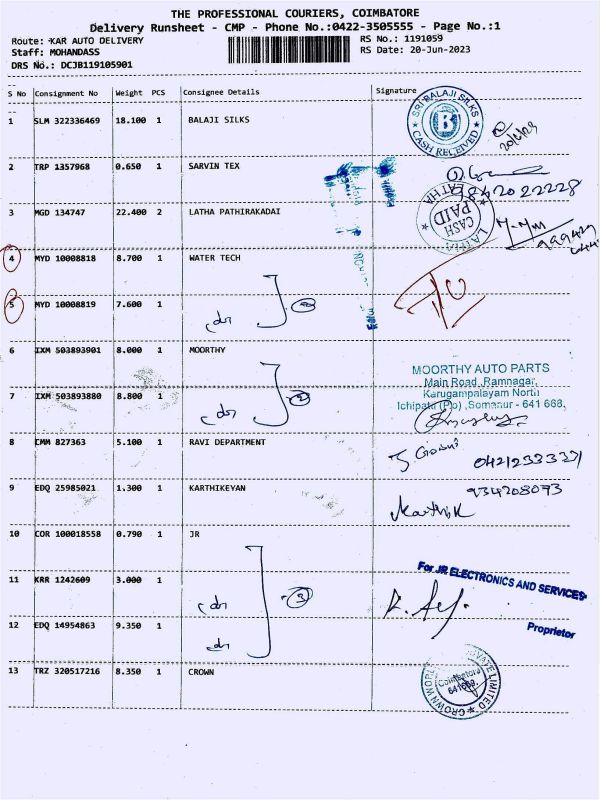 THE PROFESSIONAL COURIERS, COIMBATORE
Delivery Runsheet - CMP - Phone No.:0422-3505555 - Page No.:1
Route: KAR AUTO DELIVERY
RS No.: 1191059
Staff: MOHANDASS
RS Date: 20-Jun-2023
DRS No.: DCJB119105901
S No Consignment No Weight PCS Consignee Details Signature
1 SLM 322336469 18.100 1 BALAJI SILKS
SRI BALAJI SILKS
B
CASH RECEIVED
20/6/23
2 TRP 1357968 0.650 1 SARVIN TEX
9842022228
3 MGD 134747 22.400 2 LATHA PATHIRAKADAI
LATHA
CASH
PAID
4 MYD 10008818 8.700 1 WATER TECH
5 MYD 10008819 7.600 1
6 IXM 503893901 8.000 1 MOORTHY
MOORTHY AUTO PARTS
Main Road, Ramnagar,
Karugampalayam North
Ichipatti (P.o) ,Somanur - 641 668.
7 IXM 503893880 8.800 1
2
8 CMM 827363 5.100 1 RAVI DEPARTMENT
9 EDQ 25985021 1.300 1 KARTHIKEYAN
934208073
Karthik
10 COR 100018558 0.790 1 JR
For JR ELECTRONICS AND SERVICES
11 KRR 1242609 3.000 1
3
12 EDQ 14954863 9.350 1
Proprietor
13 TRZ 320517216 8.350 1 CROWN